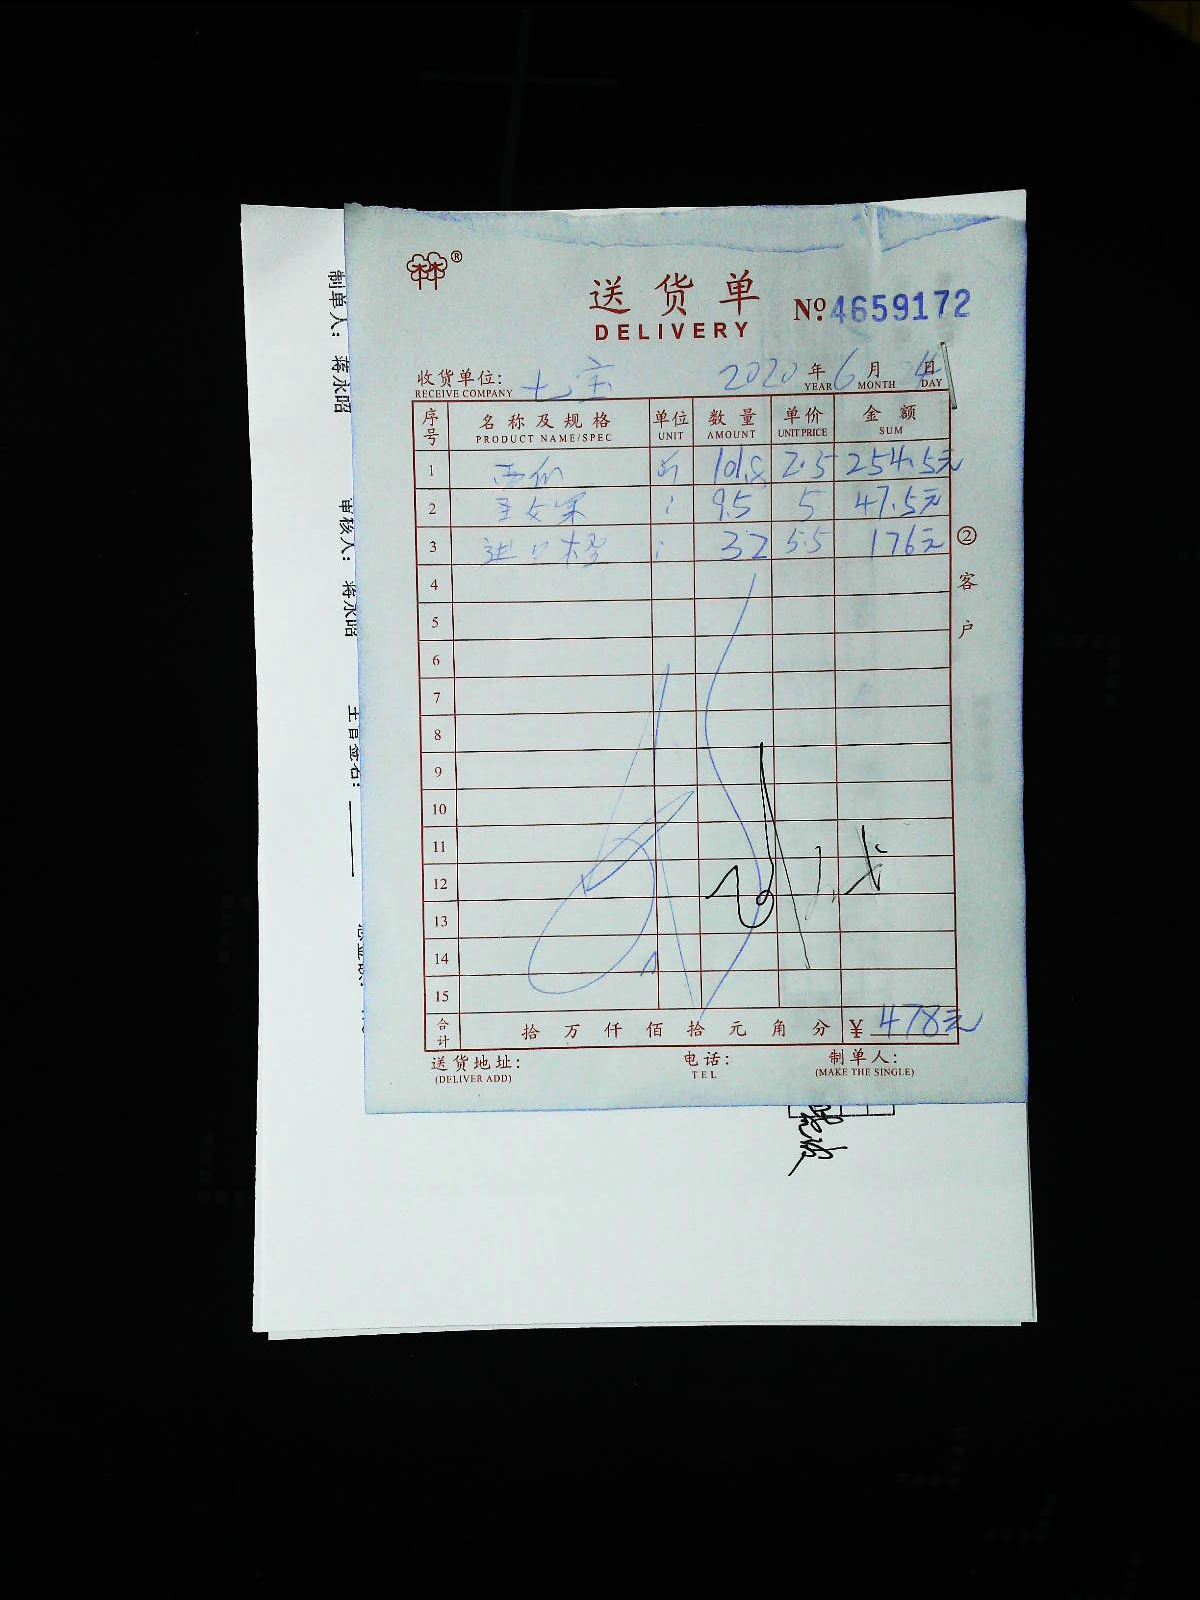 ®
送货单
DELIVERY
No 4659172
收货单位: 七宝 2020年6月4日
RECEIVE COMPANY YEAR MONTH DAY
序号 名称及规格 单位 数量 单价 金额
PRODUCT NAME/SPEC UNIT AMOUNT UNIT PRICE SUM
1 西瓜 斤 101.8 2.5 254.5元
2 9.5 5 47.5元
3 进口橙 32 5.5 176元
4
5
6
7
8
9
10
11
12
13
14
15
合计 拾万仟佰拾元角分 ¥ 478元
送货地址: 电话: 制单人:
(DELIVER ADD) TEL (MAKE THE SINGLE)
②客户
制单人: 蒋永昭
审核人: 蒋永昭
主管签名: